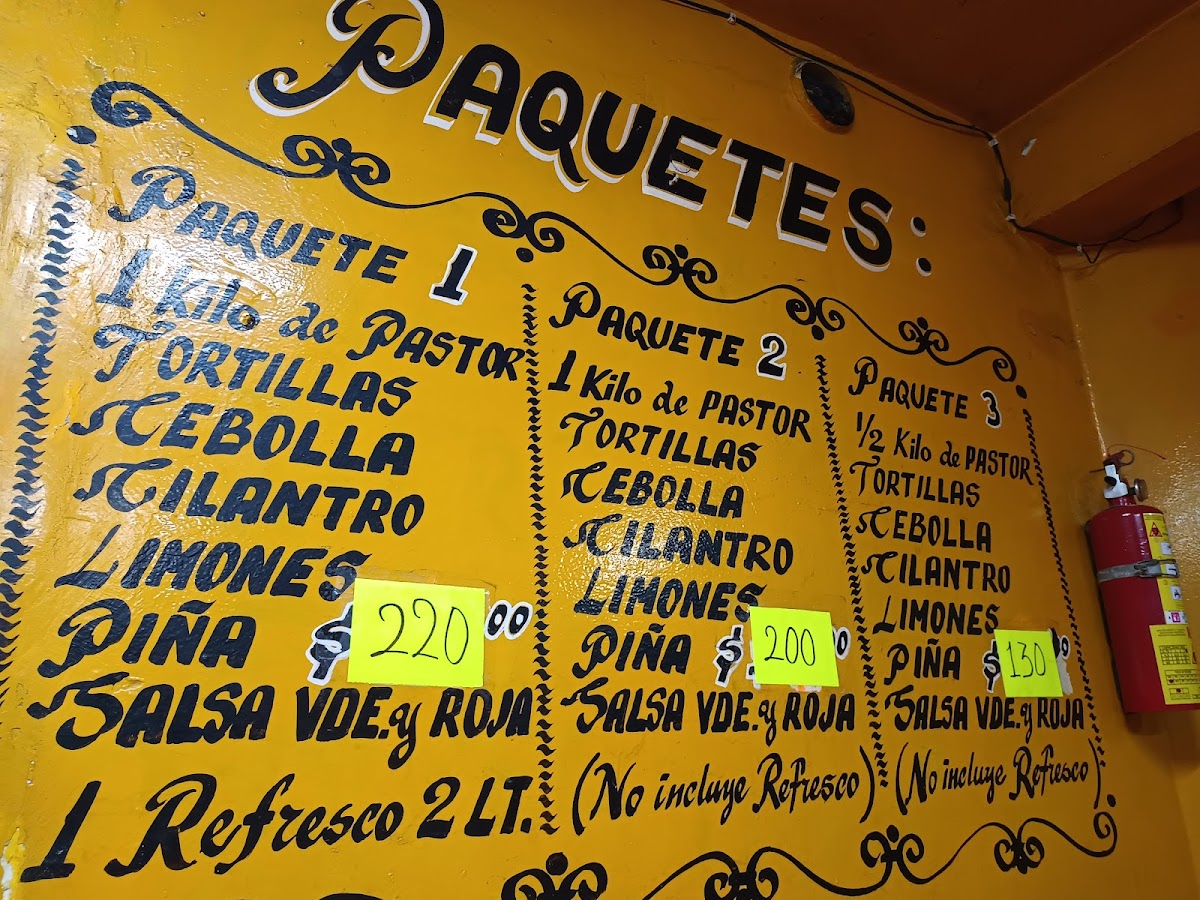 PAQUETES:
PAQUETE 1
1 Kilo de PASTOR
TORTILLAS
CEBOLLA
CILANTRO
LIMONES
PIÑA $ 220 00
SALSA VDE. y ROJA
1 Refresco 2 LT.
PAQUETE 2
1 Kilo de PASTOR
TORTILLAS
CEBOLLA
CILANTRO
LIMONES
PIÑA $ 200
SALSA VDE. y ROJA
(No incluye Refresco)
PAQUETE 3
1/2 Kilo de PASTOR
TORTILLAS
CEBOLLA
CILANTRO
LIMONES
PIÑA $ 130
SALSA VDE. y ROJA
(No incluye Refresco)